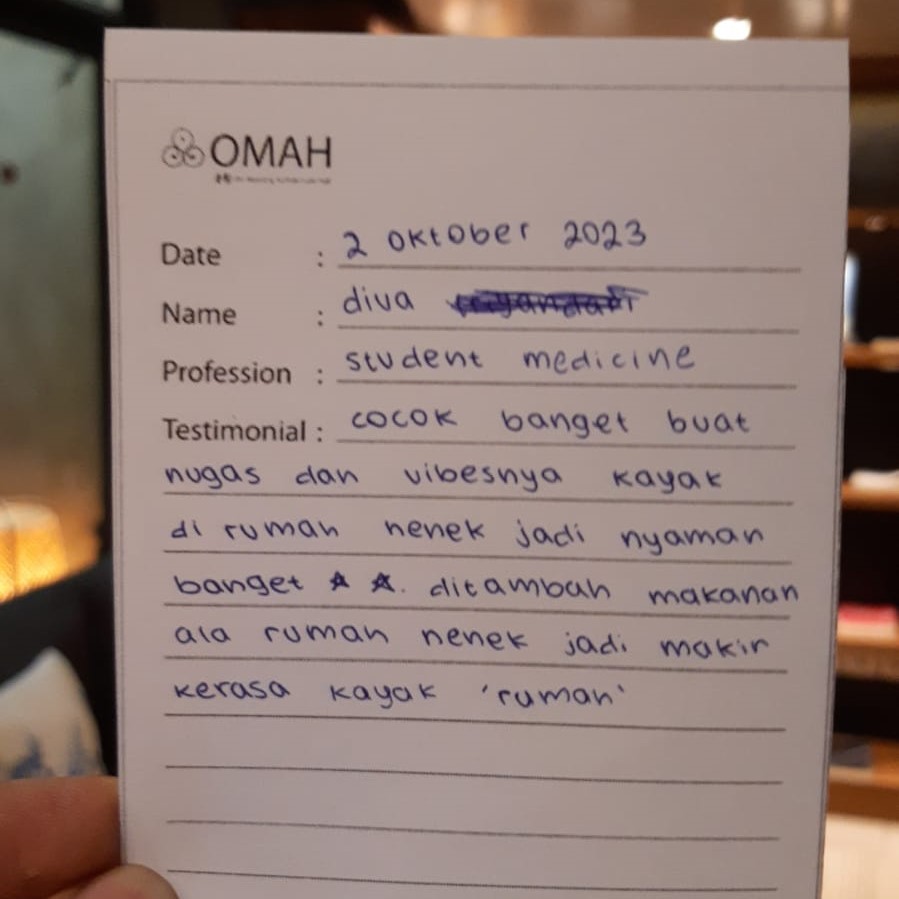 OMAH
Date : 2 Oktober 2023
Name : diva
Profession : student medicine
Testimonial : cocok banget buat
nugas dan vibesnya kayak
di rumah nenek jadi nyaman
banget ☆ ☆. ditambah makanan
ala rumah nenek jadi makin
kerasa kayak 'rumah'